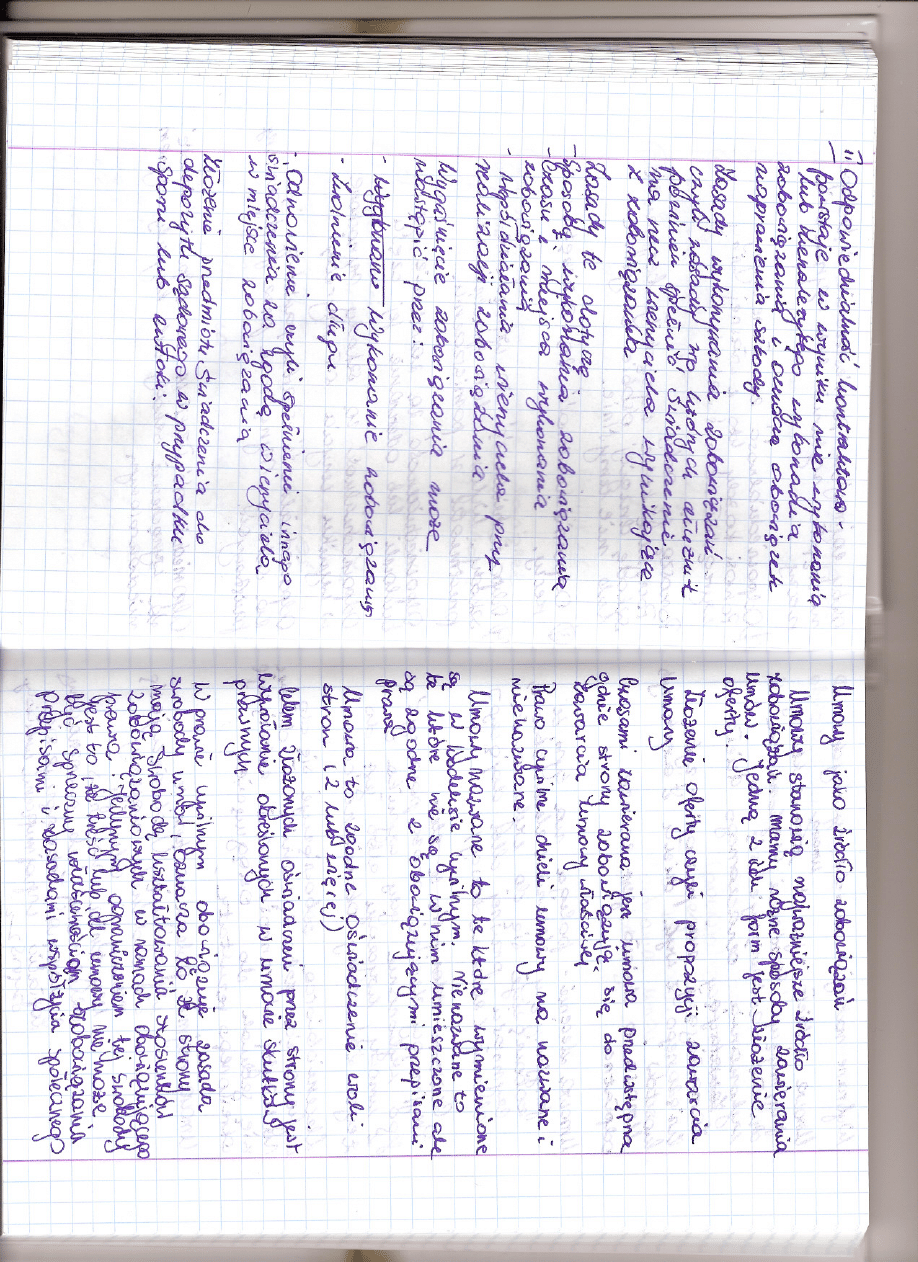 II) Odpowiedzialność kontraktowa -
powstaje w wyniku nie wykonania
lub nienależytego wykonania
zobowiązania i oznacza obowiązek
naprawienia szkody.
Zasady wykonywania zobowiązań
czyli zasady wg których dłużnik
powinien spełnić świadczenie
na rzecz wierzyciela wynikające
z zobowiązania
Zasady te dotyczą
- Sposobu wykonania zobowiązania
- Czasu i miejsca wykonania
zobowiązania
- współdziałania wierzyciela przy
realizacji zobowiązania
Wygaśnięcie zobowiązania może
nastąpić przez:
- wykonanie zobowiązania
- Zwolnienie długu
- Odnowienie czyli spełnienie innego
świadczenia za zgodą wierzyciela
w miejsce zobowiązania
Złożenie przedmiotu świadczenia do
depozytu sądowego w przypadku
sporu lub zwłoki.
Umowy jako źródło zobowiązań
Umowy stanowią najważniejsze źródło
zobowiązań. mamy różne sposoby zawierania
umów. Jedną z ich form jest złożenie
oferty.
Złożenie oferty czyli propozycji zawarcia
umowy
Czasami zawierana jest umowa przedwstępna
gdzie strony zobowiązują się do
zawarcia umowy właściwej
Prawo cywilne dzieli umowy na nazwane i
nienazwane.
Umowy nazwane to te które wymienione
są w kodeksie cywilnym. Nienazwane to
te które nie są w nim umieszczone ale
są zgodne z obowiązującymi przepisami
prawa
Umowa to zgodne oświadczenie woli
stron (2 lub więcej)
Celem złożonych oświadczeń przez strony jest
wywołanie określonych w umowie skutków
prawnych
W prawie cywilnym obowiązuje zasada
swobody umów, oznacza to że strony
mają swobodę kształtowania stosunków
zobowiązaniowych w ramach obowiązującego
prawa. jedynym ograniczeniem tej swobody
jest to, że treść lub cel umowy nie może
być sprzeczny właściwościom zobowiązania
przepisami i zasadami współżycia społecznego